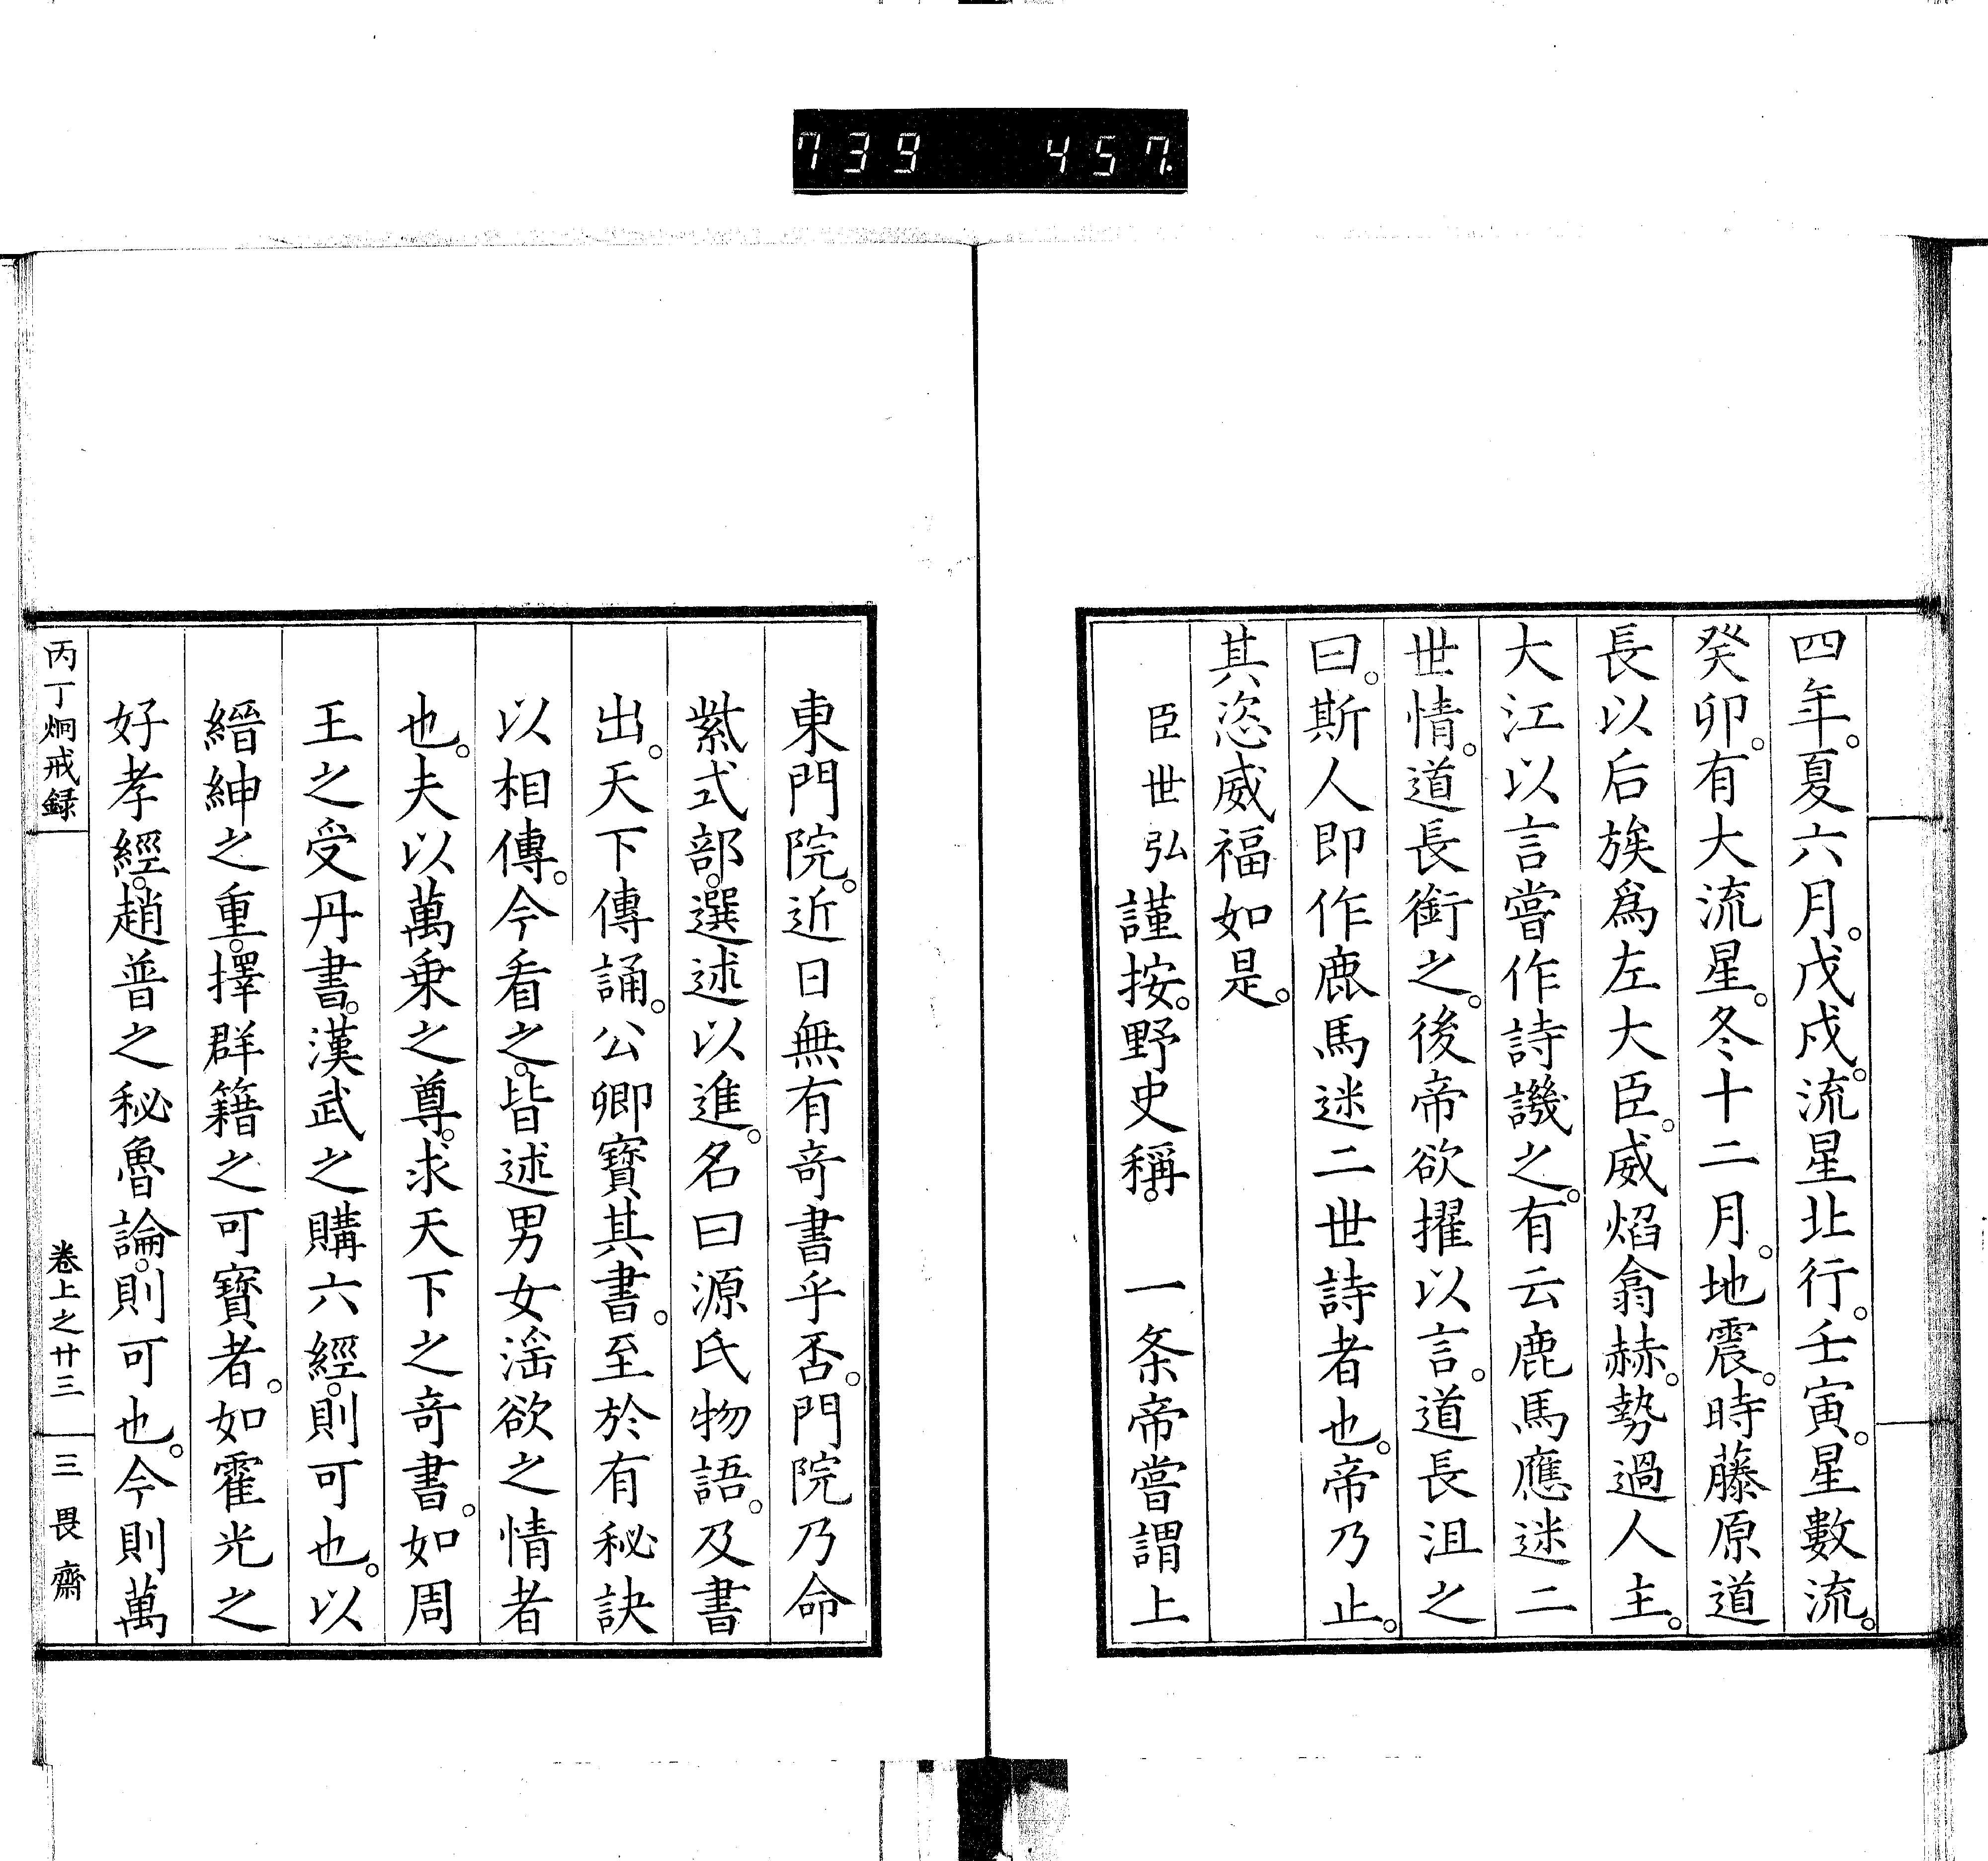 739 457.
四年。夏六月。戊戌。流星北行。壬寅。星數流。
癸卯。有大流星。冬十二月。地震。時藤原道
長以后族爲左大臣。威焰翕赫。勢過人主。
大江以言嘗作詩譏之。有云鹿馬應迷二
世情。道長銜之。後帝欲擢以言。道長沮之
曰。斯人即作鹿馬迷二世詩者也。帝乃止。
其恣威福如是。
臣世弘謹按。野史稱。一条帝嘗謂上
東門院。近日無有奇書乎否。門院乃命
紫式部。選述以進。名曰源氏物語。及書
出。天下傳誦。公卿寶其書。至於有秘訣
以相傳。今看之。皆述男女滛欲之情者
也。夫以萬乗之尊。求天下之奇書。如周
王之受丹書。漢武之購六經。則可也。以
縉紳之重。擇群籍之可寶者。如霍光之
好孝經。趙普之秘魯論。則可也。今則萬
丙丁烱戒録
卷上之廿三
三畏齋